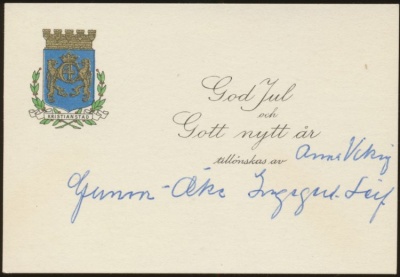 KRISTIANSTAD
God Jul
och
Gott nytt år
tillönskas av Anne
Gunnar - Åke Ingegerd. Leif